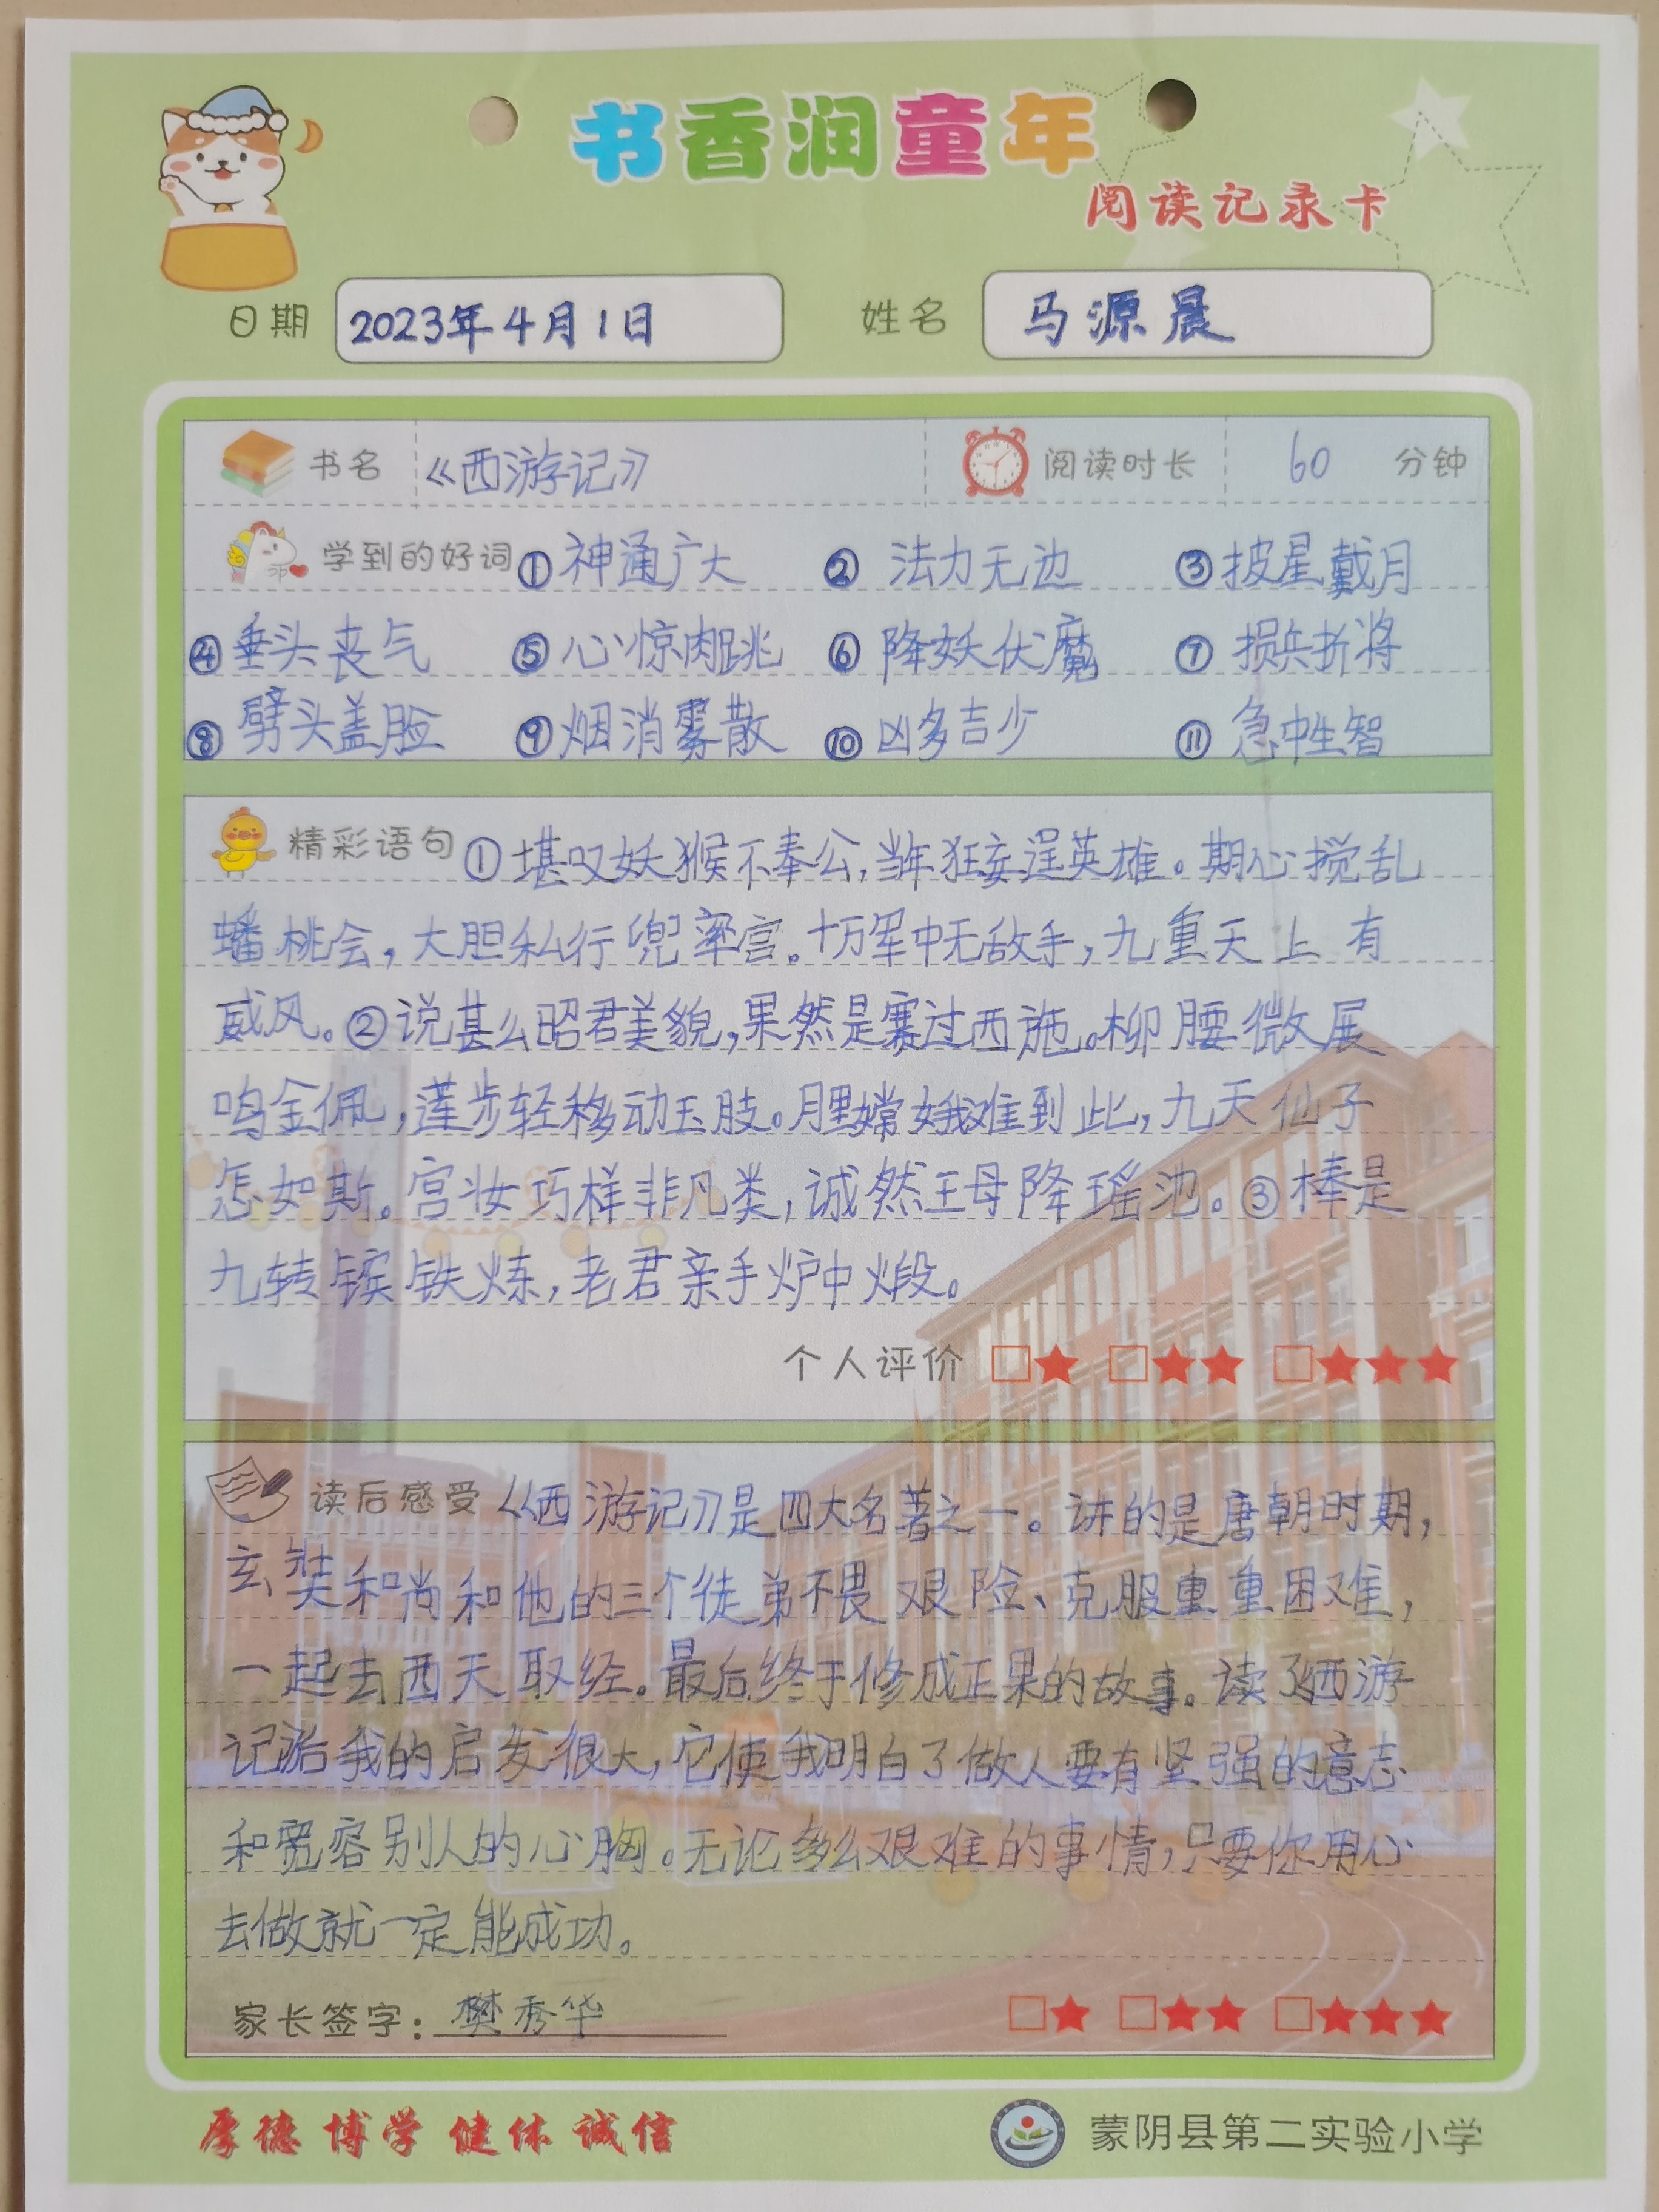 书香润童年
阅读记录卡
日期 2023年4月1日 姓名 马源晨
书名 《西游记》 阅读时长 60 分钟
学到的好词 ①神通广大 ② 法力无边 ③披星戴月
④垂头丧气 ⑤心惊肉跳 ⑥降妖伏魔 ⑦损兵折将
⑧劈头盖脸 ⑨烟消雾散 ⑩凶多吉少 ⑪急中生智
精彩语句 ①堪叹妖猴不奉公,当年狂妄逞英雄。期心搅乱
蟠桃会,大胆私行兜率宫。十万军中无敌手,九重天上有
威风。②说甚么昭君美貌,果然是赛过西施。柳腰微展
鸣金佩,莲步轻移动玉肢。月里嫦娥难到此,九天仙子
怎如斯。宫妆巧样非凡类,诚然王母降瑶池。③棒是
九转镔铁炼,老君亲手炉中煅。
个人评价 □★ □★★ □★★★
读后感受 《西游记》是四大名著之一。讲的是唐朝时期,
玄奘和尚和他的三个徒弟不畏艰险、克服重重困难,
一起去西天取经。最后终于修成正果的故事。读了西游
记给我的启发很大,它使我明白了做人要有坚强的意志
和宽容别人的心胸。无论多么艰难的事情,只要你用心
去做就一定能成功。
家长签字: 樊秀华 □★ □★★ □★★★
厚德 博学 健体 诚信 蒙阴县第二实验小学